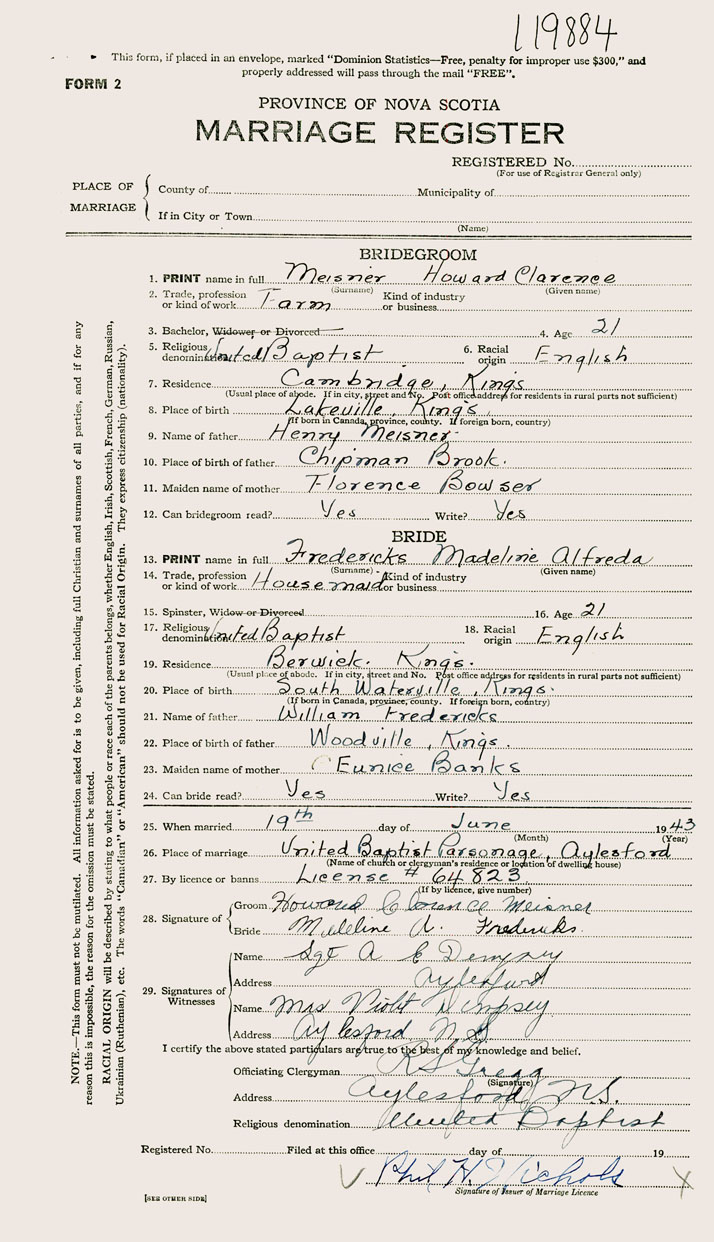 119884
This form, if placed in an envelope, marked "Dominion Statistics—Free, penalty for improper use $300," and
properly addressed will pass through the mail "FREE".
FORM 2
PROVINCE OF NOVA SCOTIA
MARRIAGE REGISTER
REGISTERED No.
(For use of Registrar General only)
PLACE OF MARRIAGE
County of Municipality of
If in City or Town
(Name)
BRIDEGROOM
1. PRINT name in full Meisner Howard Clarence
(Surname) (Given name)
2. Trade, profession or kind of work Farm Kind of industry or business
3. Bachelor, Widower or Divorced 4. Age 21
5. Religious denomination United Baptist 6. Racial origin English
7. Residence Cambridge, Kings
(Usual place of abode. If in city, street and No. Post office address for residents in rural parts not sufficient)
8. Place of birth Lakeville, Kings.
(If born in Canada, province, county. If foreign born, country)
9. Name of father Henry Meisner
10. Place of birth of father Chipman Brook.
11. Maiden name of mother Florence Bowser
12. Can bridegroom read? Yes Write? Yes
BRIDE
13. PRINT name in full Fredericks Madeline Alfreda
(Surname) (Given name)
14. Trade, profession or kind of work Housemaid Kind of industry or business
15. Spinster, Widow or Divorced 16. Age 21
17. Religious denomination United Baptist 18. Racial origin English
19. Residence Berwick. Kings.
(Usual place of abode. If in city, street and No. Post office address for residents in rural parts not sufficient)
20. Place of birth South Waterville, Kings.
(If born in Canada, province, county. If foreign born, country)
21. Name of father William Fredericks
22. Place of birth of father Woodville, Kings.
23. Maiden name of mother Eunice Banks
24. Can bride read? Yes Write? Yes
25. When married 19th day of June 1943
(Month) (Year)
26. Place of marriage United Baptist Parsonage, Aylesford
(Name of church or clergyman's residence or location of dwelling house)
27. By licence or banns License # 64823
(If by licence, give number)
28. Signature of
Groom Howard Clarence Meisner
Bride Madeline A. Fredericks.
29. Signatures of Witnesses
Name Sgt A E Dempsey
Address Aylesford
Name Mrs Violet Dempsey
Address Aylesford N.S.
I certify the above stated particulars are true to the best of my knowledge and belief.
Officiating Clergyman R S Gregg
(Signature)
Address Aylesford N.S.
Religious denomination United Baptist
Registered No. Filed at this office day of 19
Phil H. Nichols
Signature of Issuer of Marriage Licence
[SEE OTHER SIDE]
NOTE.—This form must not be mutilated. All information asked for is to be given, including full Christian and surnames of all parties, and if for any
reason this is impossible, the reason for the omission must be stated.
RACIAL ORIGIN will be described by stating to what people or race each of the parents belongs, whether English, Irish, Scottish, French, German, Russian,
Ukrainian (Ruthenian), etc. The words "Canadian" or "American" should not be used for Racial Origin. They express citizenship (nationality).